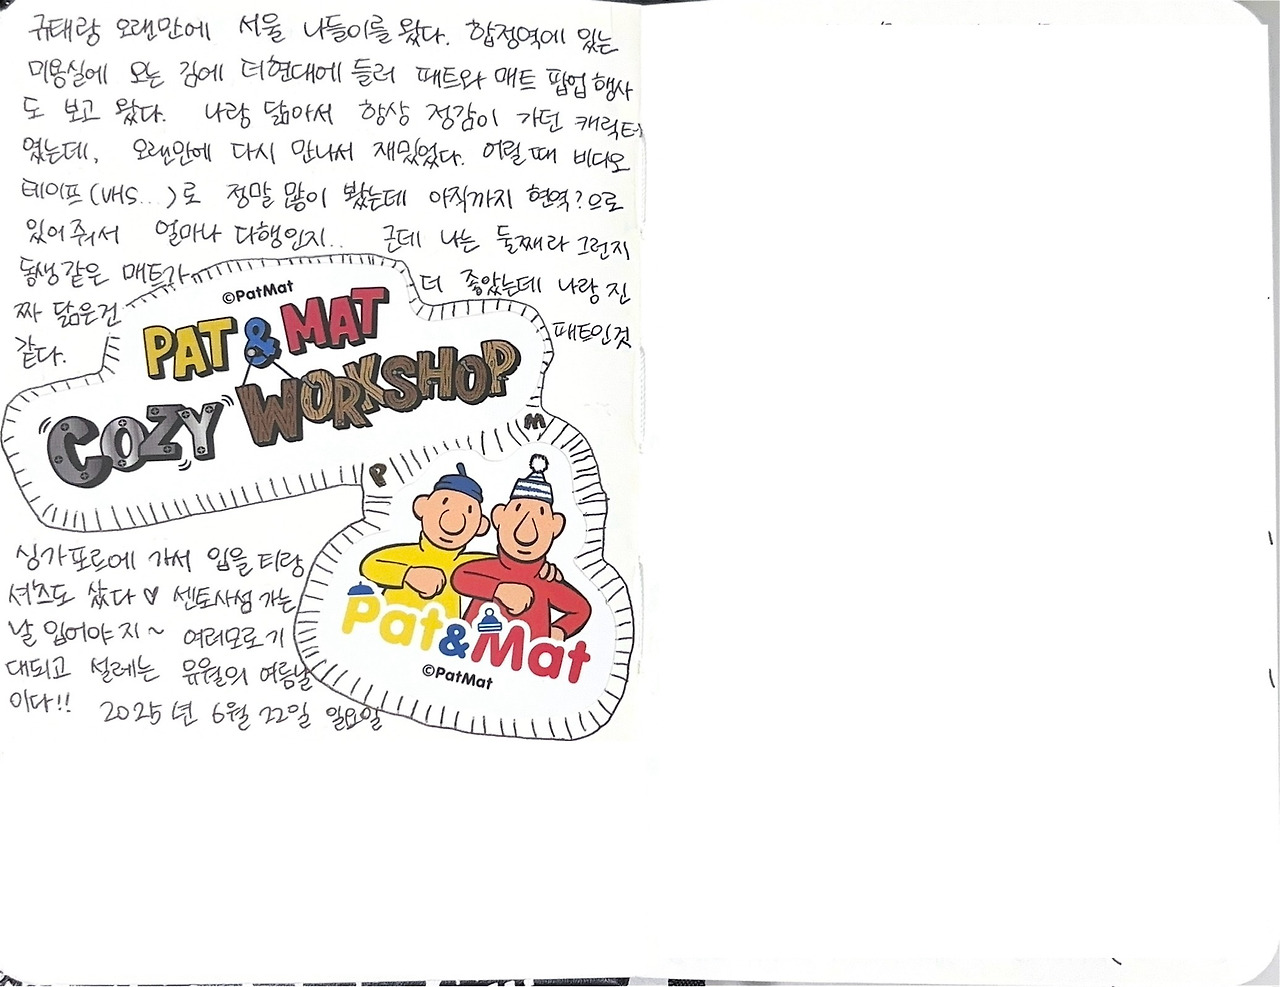 규태랑 오랜만에 서울 나들이를 왔다. 합정역에 있는
미용실에 오는 김에 더현대에 들러 패트와 매트 팝업 행사
도 보고 왔다. 나랑 닮아서 항상 정감이 가던 캐릭터
였는데, 오랜만에 다시 만나서 재밌었다. 어릴 때 비디오
테이프(VHS...)로 정말 많이 봤는데 아직까지 현역?으로
있어줘서 얼마나 다행인지.. 근데 나는 둘째라 그런지
동생같은 매트가 더 좋았는데 나랑 진
짜 닮은건 패트인것
같다.
©PatMat
PAT & MAT
COZY WORKSHOP
P M
Pat & Mat
©PatMat
싱가포르에 가서 입을 티랑
셔츠도 샀다 ♡ 센토사섬 가는
날 입어야지~ 여러모로 기
대되고 설레는 유월의 여름날
이다!! 2025년 6월 22일 일요일